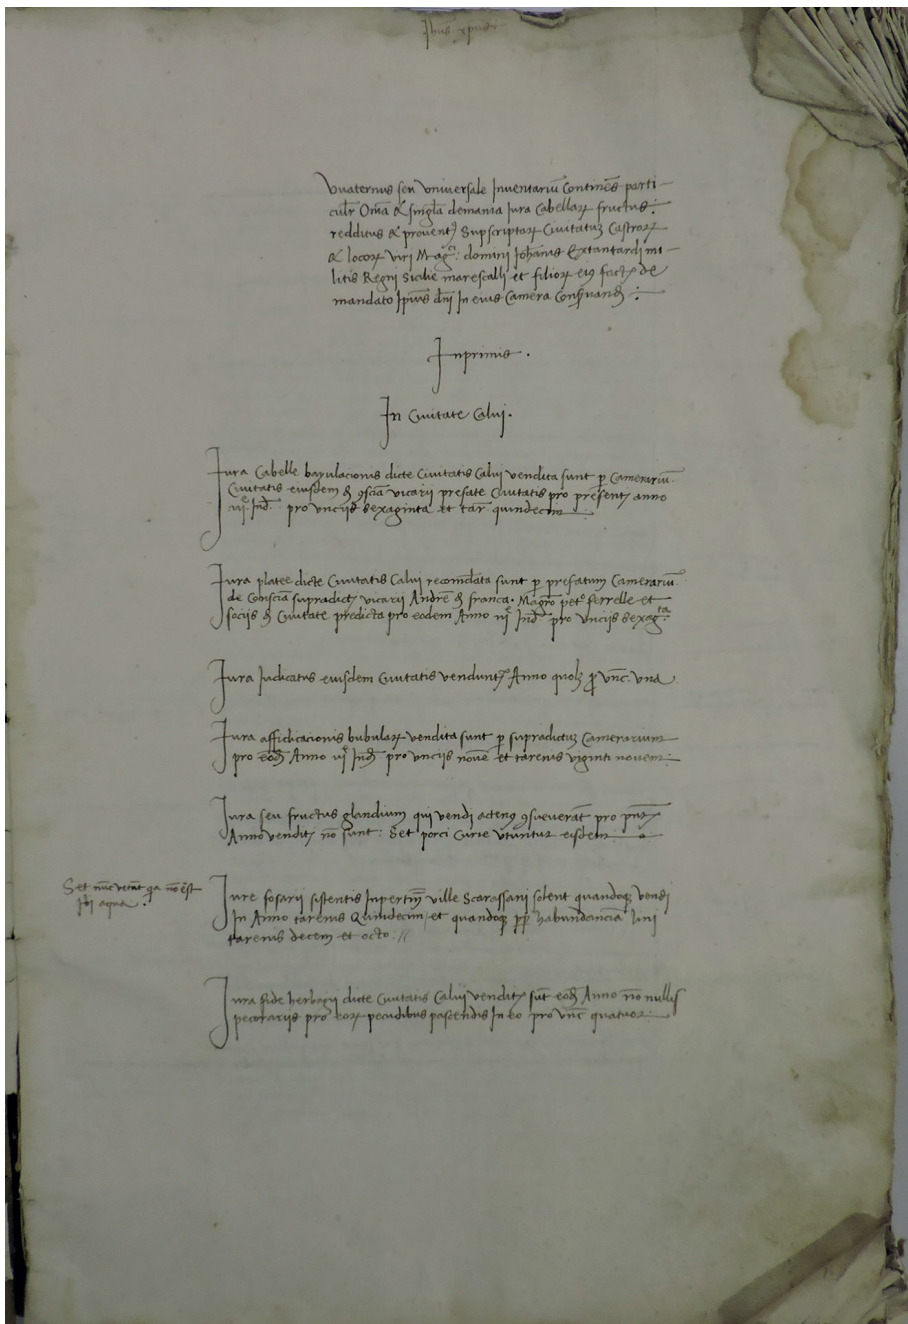 Jhus xpus
Quaternus seu Universale Inventariū Continēs parti-
culr̄ Om̄ia & singl̄a demania Iura Cabellaꝝ fructus:
redditus & provent9 Supscriptaꝝ Civitatuꝫ Castroꝝ
& locoꝝ viri Mag.ci: domini Ioh̄anis Extantardi mi-
litis Regni Sicilie marescalli et filioꝝ eiꝰ fact9 de
mandato Ip̄ius dn̄i In eius Camera Conservand̄ :
Inprimis.
In Civitate Calvi.
Iura Cabelle baiulacionis dicte Civitatis Calvi vendita sunt ꝑ Camerariū
Civitatis eiusdem d̄ ꝯsciā vicarii prefate Civitatis pro present9 anno
vii.e Ind̄. pro unciis sexaginta et tar. quindecim
Iura platee dicte Civitatis Calvi recomd̄ata sunt ꝑ prefatum Camerariū
de Consciā supradict9 vicarii Andrē d̄ franca. Magr̄o pet.o ferrelle et
sociis d̄ Civitate predicta pro eodem Anno vii.e Ind̄ pro Unciis sexag.ta
Iura Iudicatus eiusdem Civitatis vendunt.r Anno quolꝫ ꝓ Unc̄. una
Iura affidacionis bubulaꝝ vendita sunt ꝑ supradictuꝫ Camerarium
pro eōd̄ Anno vii.e Ind̄ pro unciis novē et tarenis viginti novem
Iura seu fructus glandium qui vendi actenꝰ ꝯsueverāt pro pn̄t9
Anno vendit9 nō sunt: Set porci Curie Utuntur eisdem
Set nūc
nō est
ibi aqua.
Iure fosarii sistentis In pertinn̄ ville Scarassani solent quandoqꝫ vendi
In Anno tarenis Quindecim, et quandoqꝫ ꝓꝑ habundanciā lini
tarenis decem et octo //
Iura fide herbagii dicte Civitatis Calvi vendit9 sūt eōd̄ Anno nō nullis
pecorariis pro eoꝝ pecudibus pascendis In eo pro Unc̄ quatuor